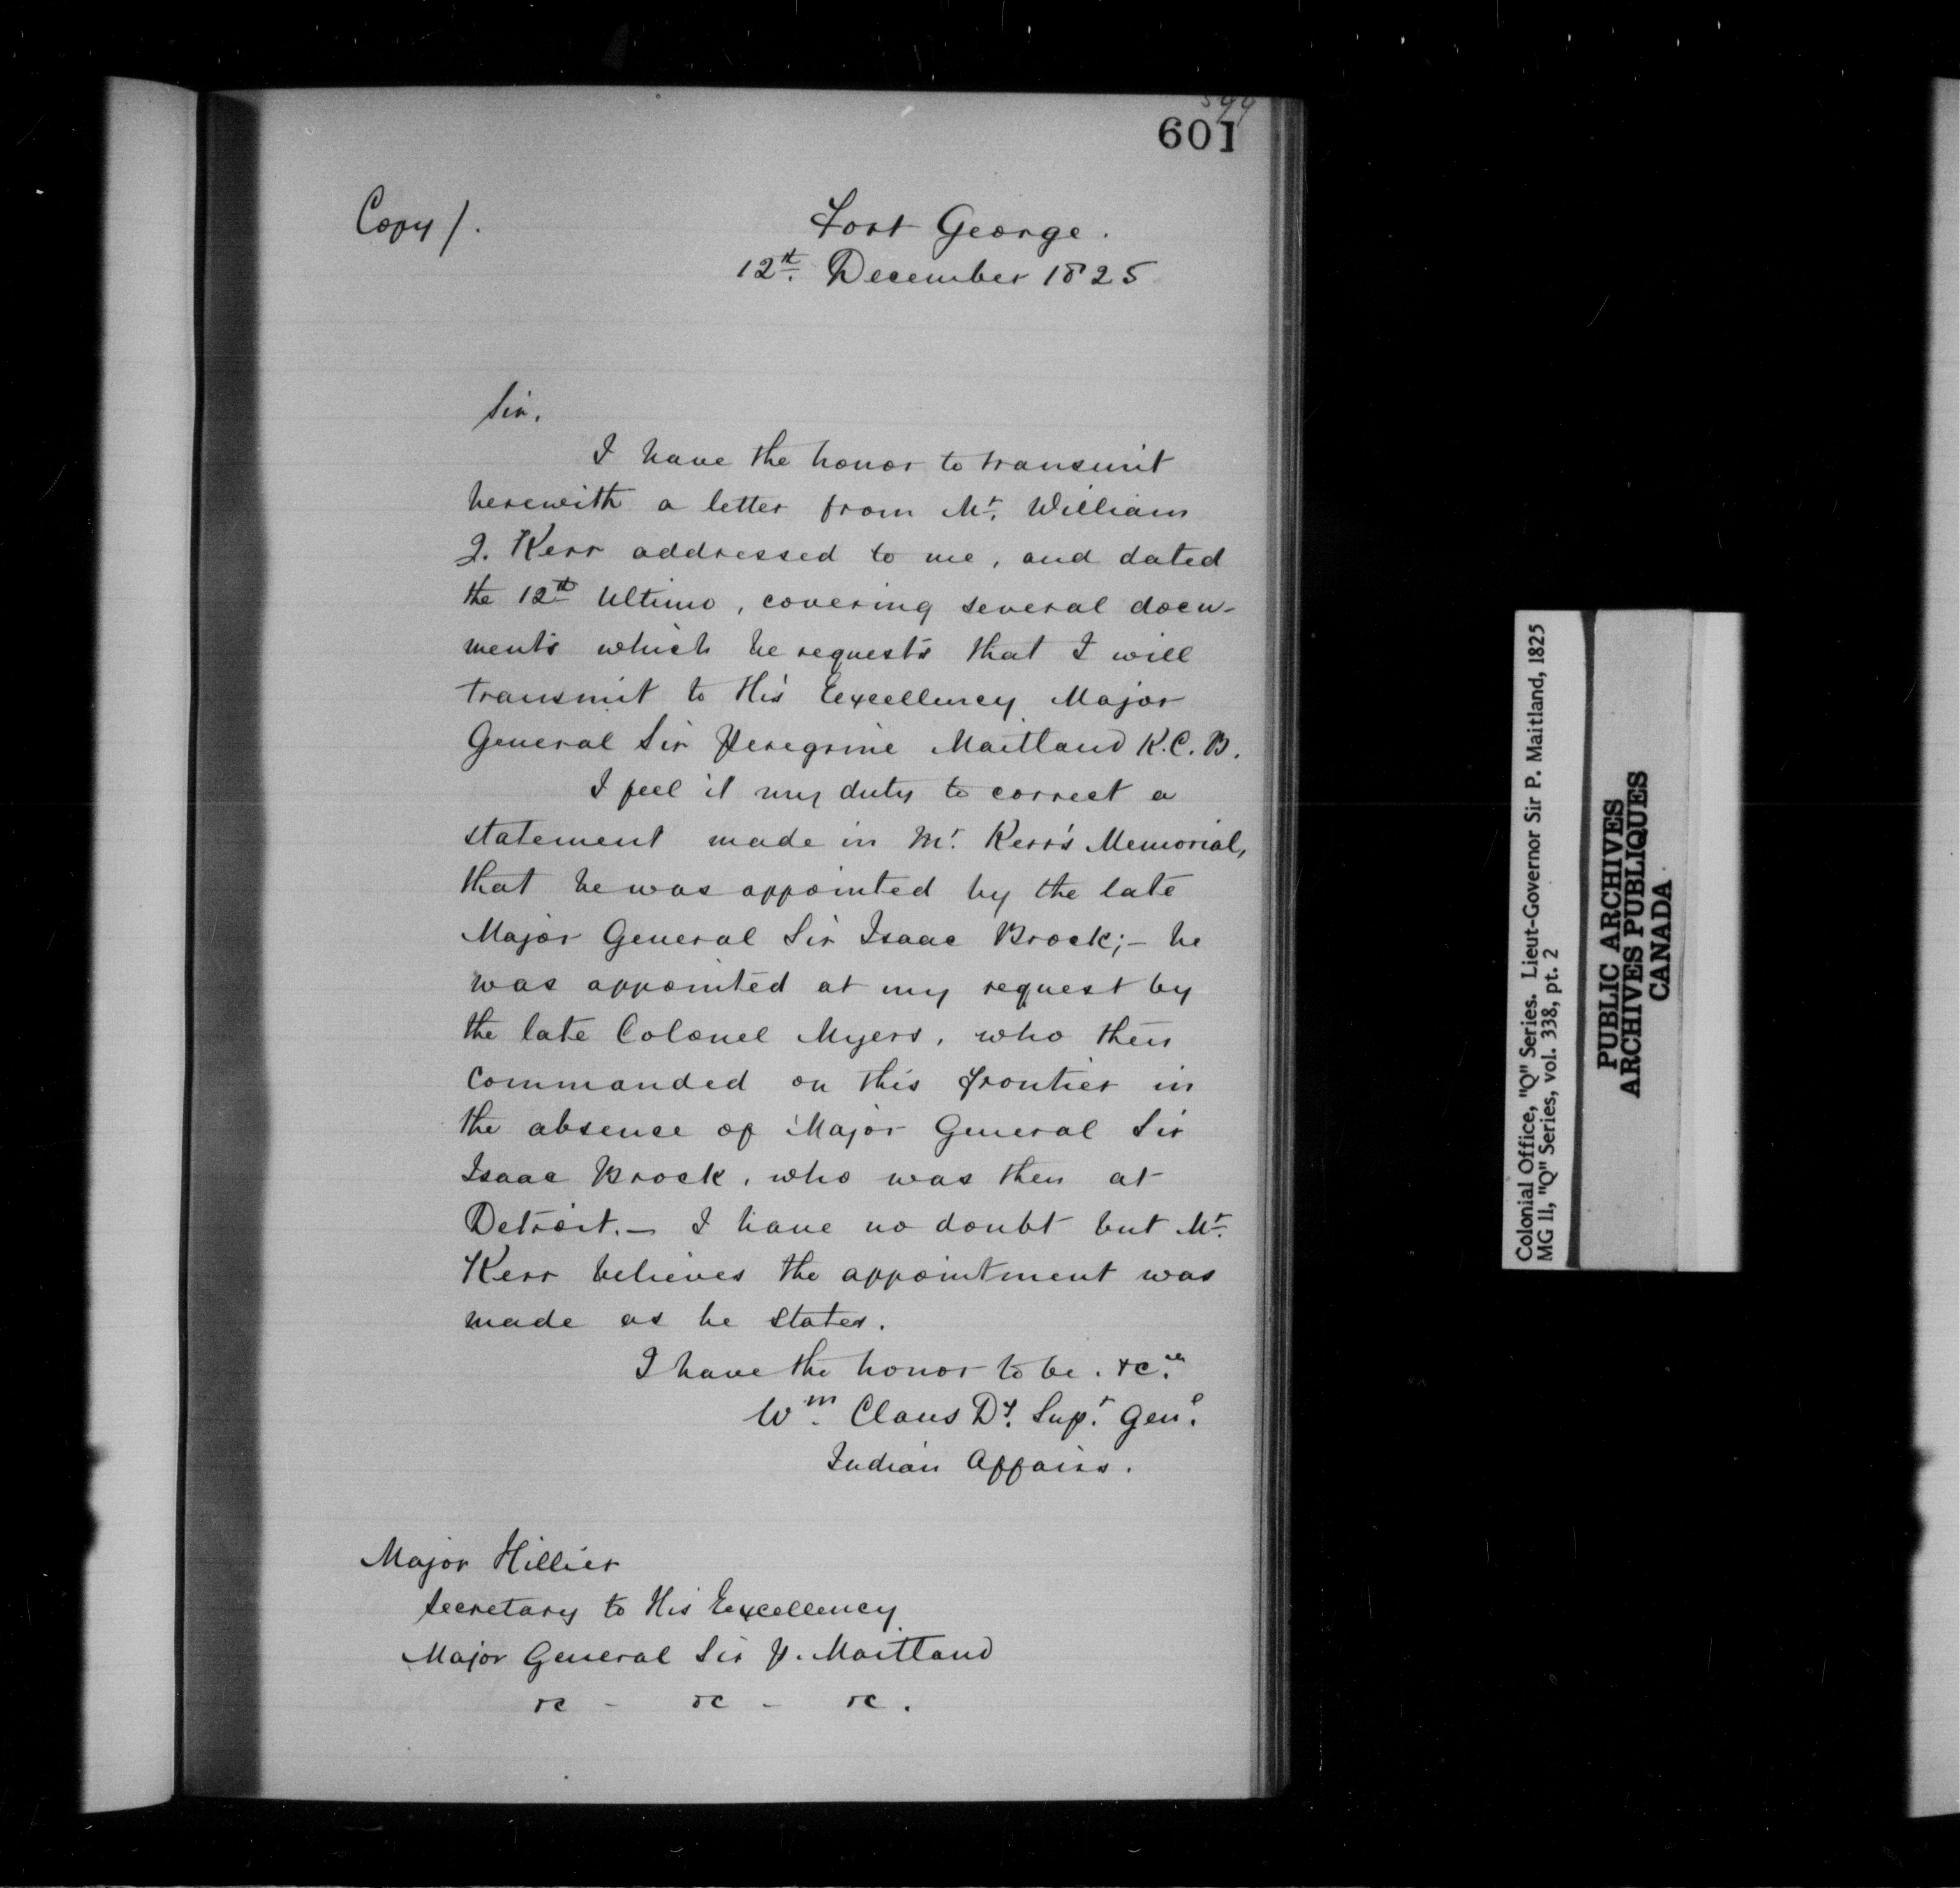 601
Copy/.
Fort George.
12th. December 1825
Sir,
I have the honor to transmit
herewith a letter from Mr. William
J. Kerr addressed to me, and dated
the 12th Ultimo, covering several docu-
ments which he requests that I will
transmit to His Excellency Major
General Sir Peregrine Maitland K.C.B.
I feel it my duty to correct a
statement made in Mr. Kerr's Memorial,
that he was appointed by the late
Major General Sir Isaac Brock;- he
was appointed at my request by
the late Colonel Myers, who then
commanded on this frontier in
the absence of Major General Sir
Isaac Brock, who was then at
Detroit.- I have no doubt but Mr.
Kerr believes the appointment was
made as he states.
I have the honor to be. &c.
Wm. Claus Dy. Supt. Genl.
Indian Affairs.
Major Hillier
Secretary to His Excellency
Major General Sir P. Maitland
&c - &c - &c.
Colonial Office, "Q" Series. Lieut-Governor Sir P. Maitland, 1825
MG 11, "Q" Series, vol. 338, pt. 2
PUBLIC ARCHIVES
ARCHIVES PUBLIQUES
CANADA